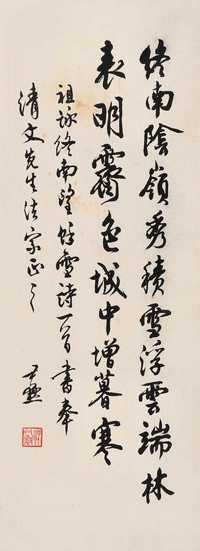 終南陰嶺秀積雪浮雲端林
表明霽色城中增暮寒
祖詠終南望餘雪詩一首書奉
清文先生法家正之
尹默